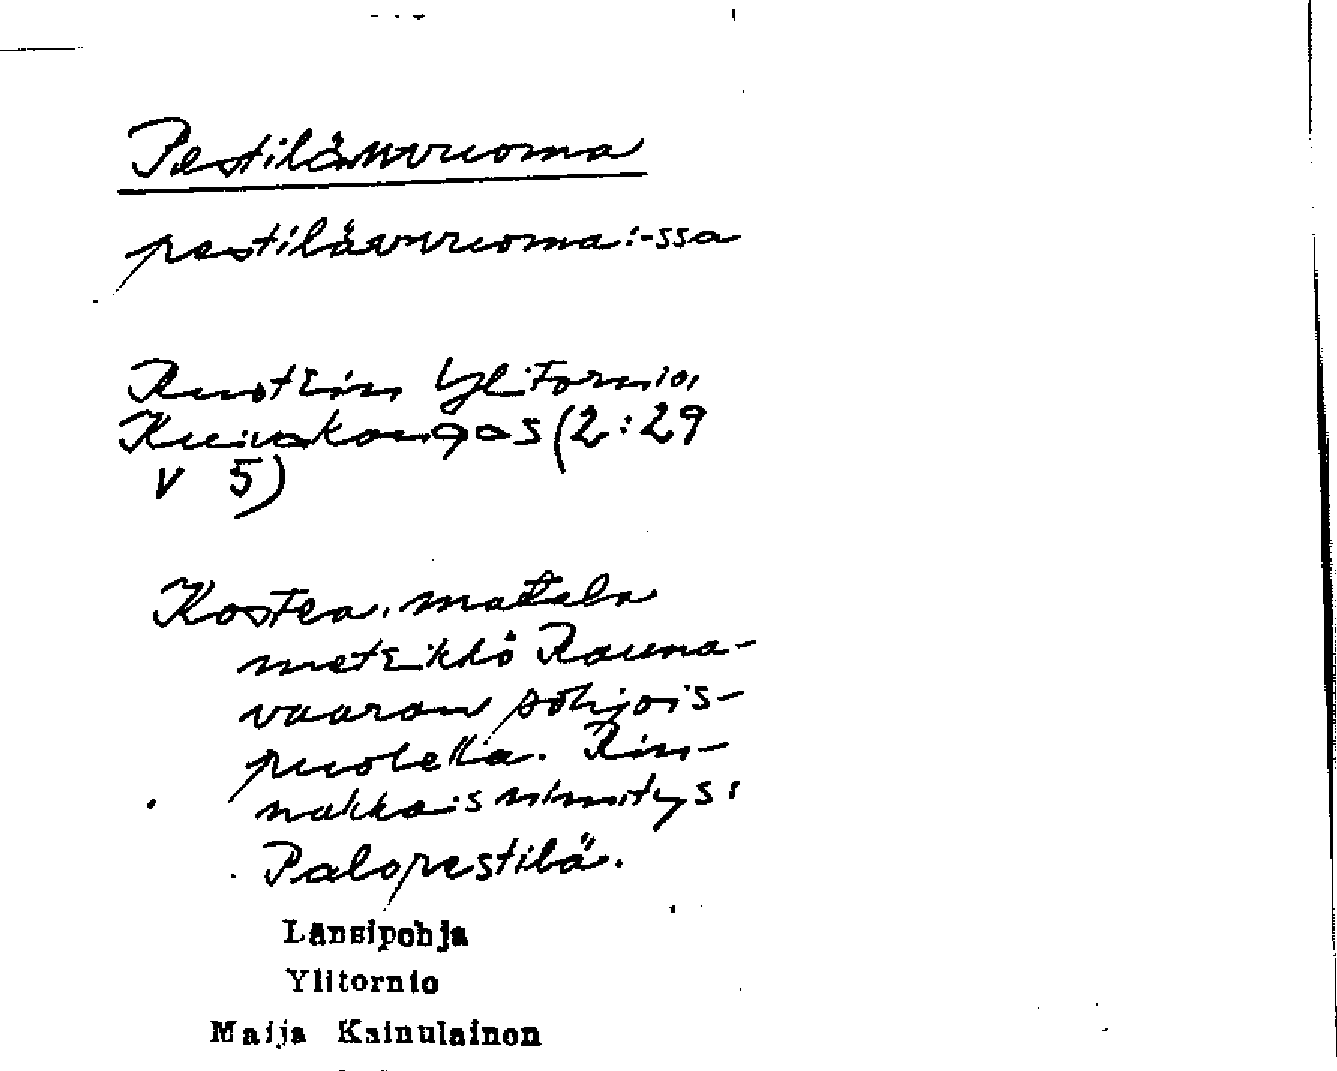 Pestilänvuoma
pestilävvuoma:-ssa
Ruotsin Ylitornio,
Kuivakangas (2:29
V 5)
Kostea, matala
metsikkö Rauna-
vaaran pohjois-
puolella. Rin-
nakkaisnimitys:
Palopestilä.
Länsipohja
Ylitornio
Maija Kainulainen